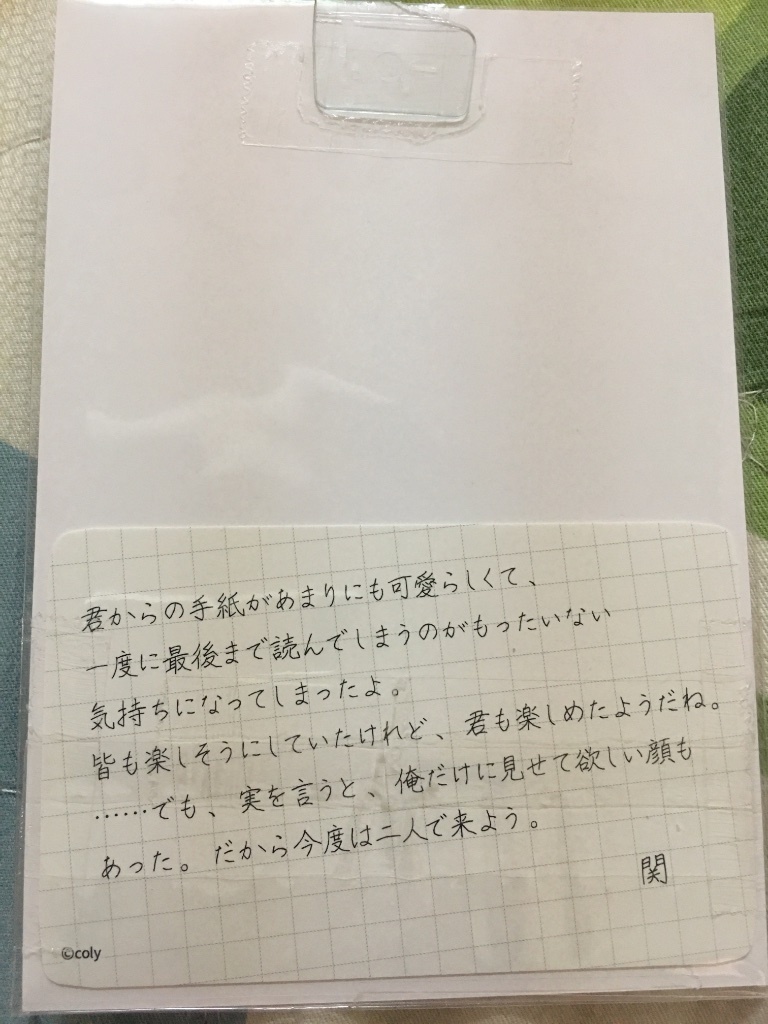 君からの手紙があまりにも可愛らしくて、
一度に最後まで読んでしまうのがもったいない
気持ちになってしまったよ。
皆も楽しそうにしていたけれど、君も楽しめたようだね。
……でも、実を言うと、俺だけに見せて欲しい顔も
あった。だから今度は二人で来よう。
関
©coly